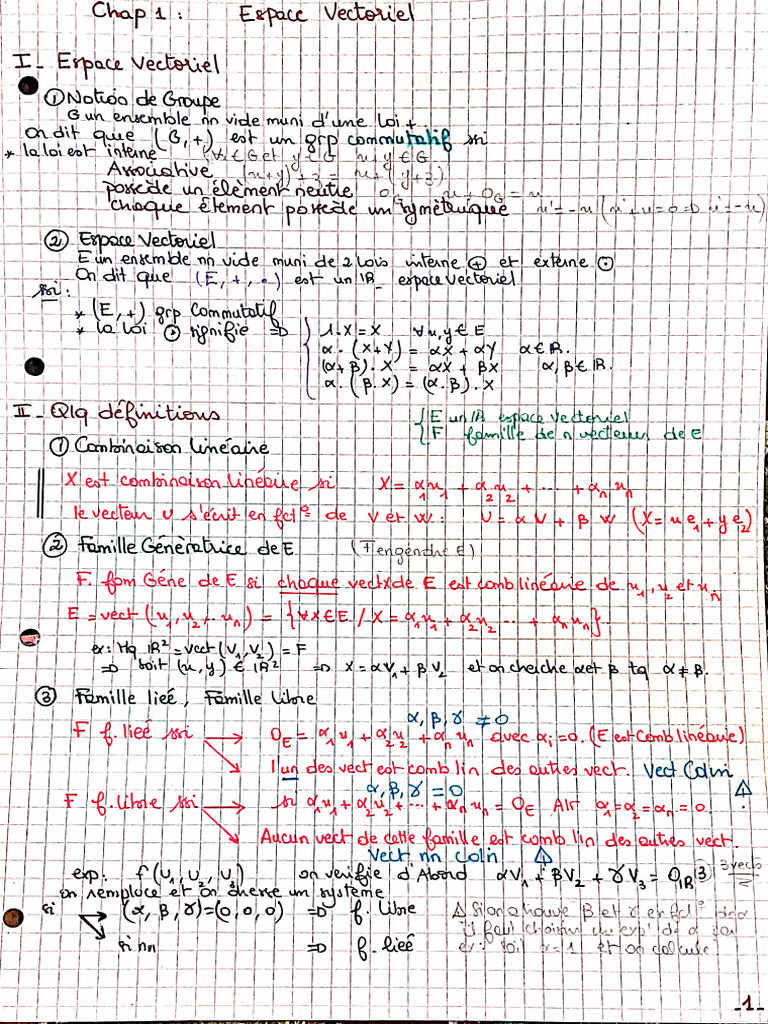 Chap 1 : Espace Vectoriel
I - Espace Vectoriel
① Notion de Groupe
G un ensemble nn vide muni d'une loi +
On dit que (G, +) est un grp commutatif si
* la loi est interne ∀x ∈ G et y ∈ G x+y ∈ G
Associative (x+y)+z = x+(y+z)
possède un élément neutre 0G x+0G = x
chaque élément possède un symétrique x' = -x (x'+x=0 => x'=-x)
② Espace Vectoriel
E un ensemble nn vide muni de 2 lois interne ⊕ et externe ⊙
On dit que (E, +, .) est un IR_ espace vectoriel
ssi :
* (E, +) grp Commutatif
* la loi ⊙ signifie => { 1.X = X ∀x,y ∈ E
α.(X+Y) = αX + αY α ∈ IR.
(α+β).X = αX + βX α,β ∈ IR.
α.(β.X) = (α.β).X
II - Qlq définitions
{ E un IR espace vectoriel
{ F famille de n vecteurs de E
① Combinaison linéaire
X est combinaison linéaire si X = α₁u₁ + α₂u₂ + ... + αₙuₙ
le vecteur U s'écrit en fct° de V et W : U = αV + βW (X = xe₁ + ye₂)
② Famille Génératrice de E (F engendre E)
F. fam Géné de E si chaque vect x de E est comb linéaire de u₁, u₂ et uₙ
E = vect(u₁, u₂, .. uₙ) = {∀X ∈ E / X = α₁u₁ + α₂u₂ ... + αₙuₙ}
ex: Mq IR² = vect(V₁, V₂) = F
=> soit (x, y) ∈ IR² => X = αV₁ + βV₂ et on cherche α et β tq α ≠ β.
③ Famille lieé, Famille Libre
α, β, γ ≠ 0
F f. lieé ssi → 0E = α₁u₁ + α₂u₂ + αₙuₙ avec αi = 0. (E est Comb linéaire)
↘ l'un des vect est comb lin des autres vect. Vect Colin
α, β, γ = 0
F f. libre ssi → si α₁u₁ + α₂u₂ + ... + αₙuₙ = 0E Alr α₁ = α₂ = αₙ = 0.
↘ Aucun vect de cette famille est comb lin des autres vect.
Vect nn Colin
exp: f(U₁, U₂, U₃) on verifie d'Abord αV₁ + βV₂ + γV₃ = 0IR③ 3 vects
on remplace et on cherche un système
si → (α, β, γ) = (0, 0, 0) => f. libre ⚠ Si on a trouvé β et γ en fct° de α
il faut choisir un exp de α
↘ si nn => f. lieé ex: soit α = 1 et on calcule
-1-